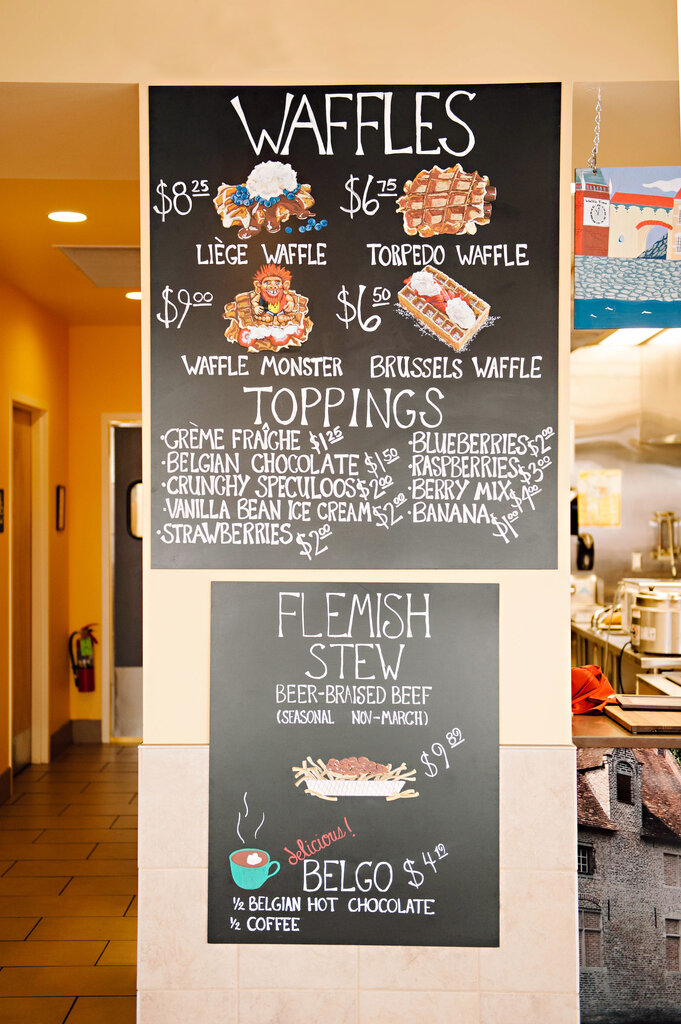 WAFFLES
$8.25 $6.75
LIÈGE WAFFLE TORPEDO WAFFLE
$9.00 $6.50
WAFFLE MONSTER BRUSSELS WAFFLE
TOPPINGS
·CRÈME FRAÎCHE $1.25
·BELGIAN CHOCOLATE $1.50
·CRUNCHY SPECULOOS $2.00
·VANILLA BEAN ICE CREAM $2.00
·STRAWBERRIES $2.00
·BLUEBERRIES $2.00
·RASPBERRIES $3.00
·BERRY MIX $4.00
·BANANA $1.00
FLEMISH
STEW
BEER-BRAISED BEEF
(SEASONAL NOV-MARCH)
$9.89
delicious!
BELGO $4.12
½ BELGIAN HOT CHOCOLATE
½ COFFEE